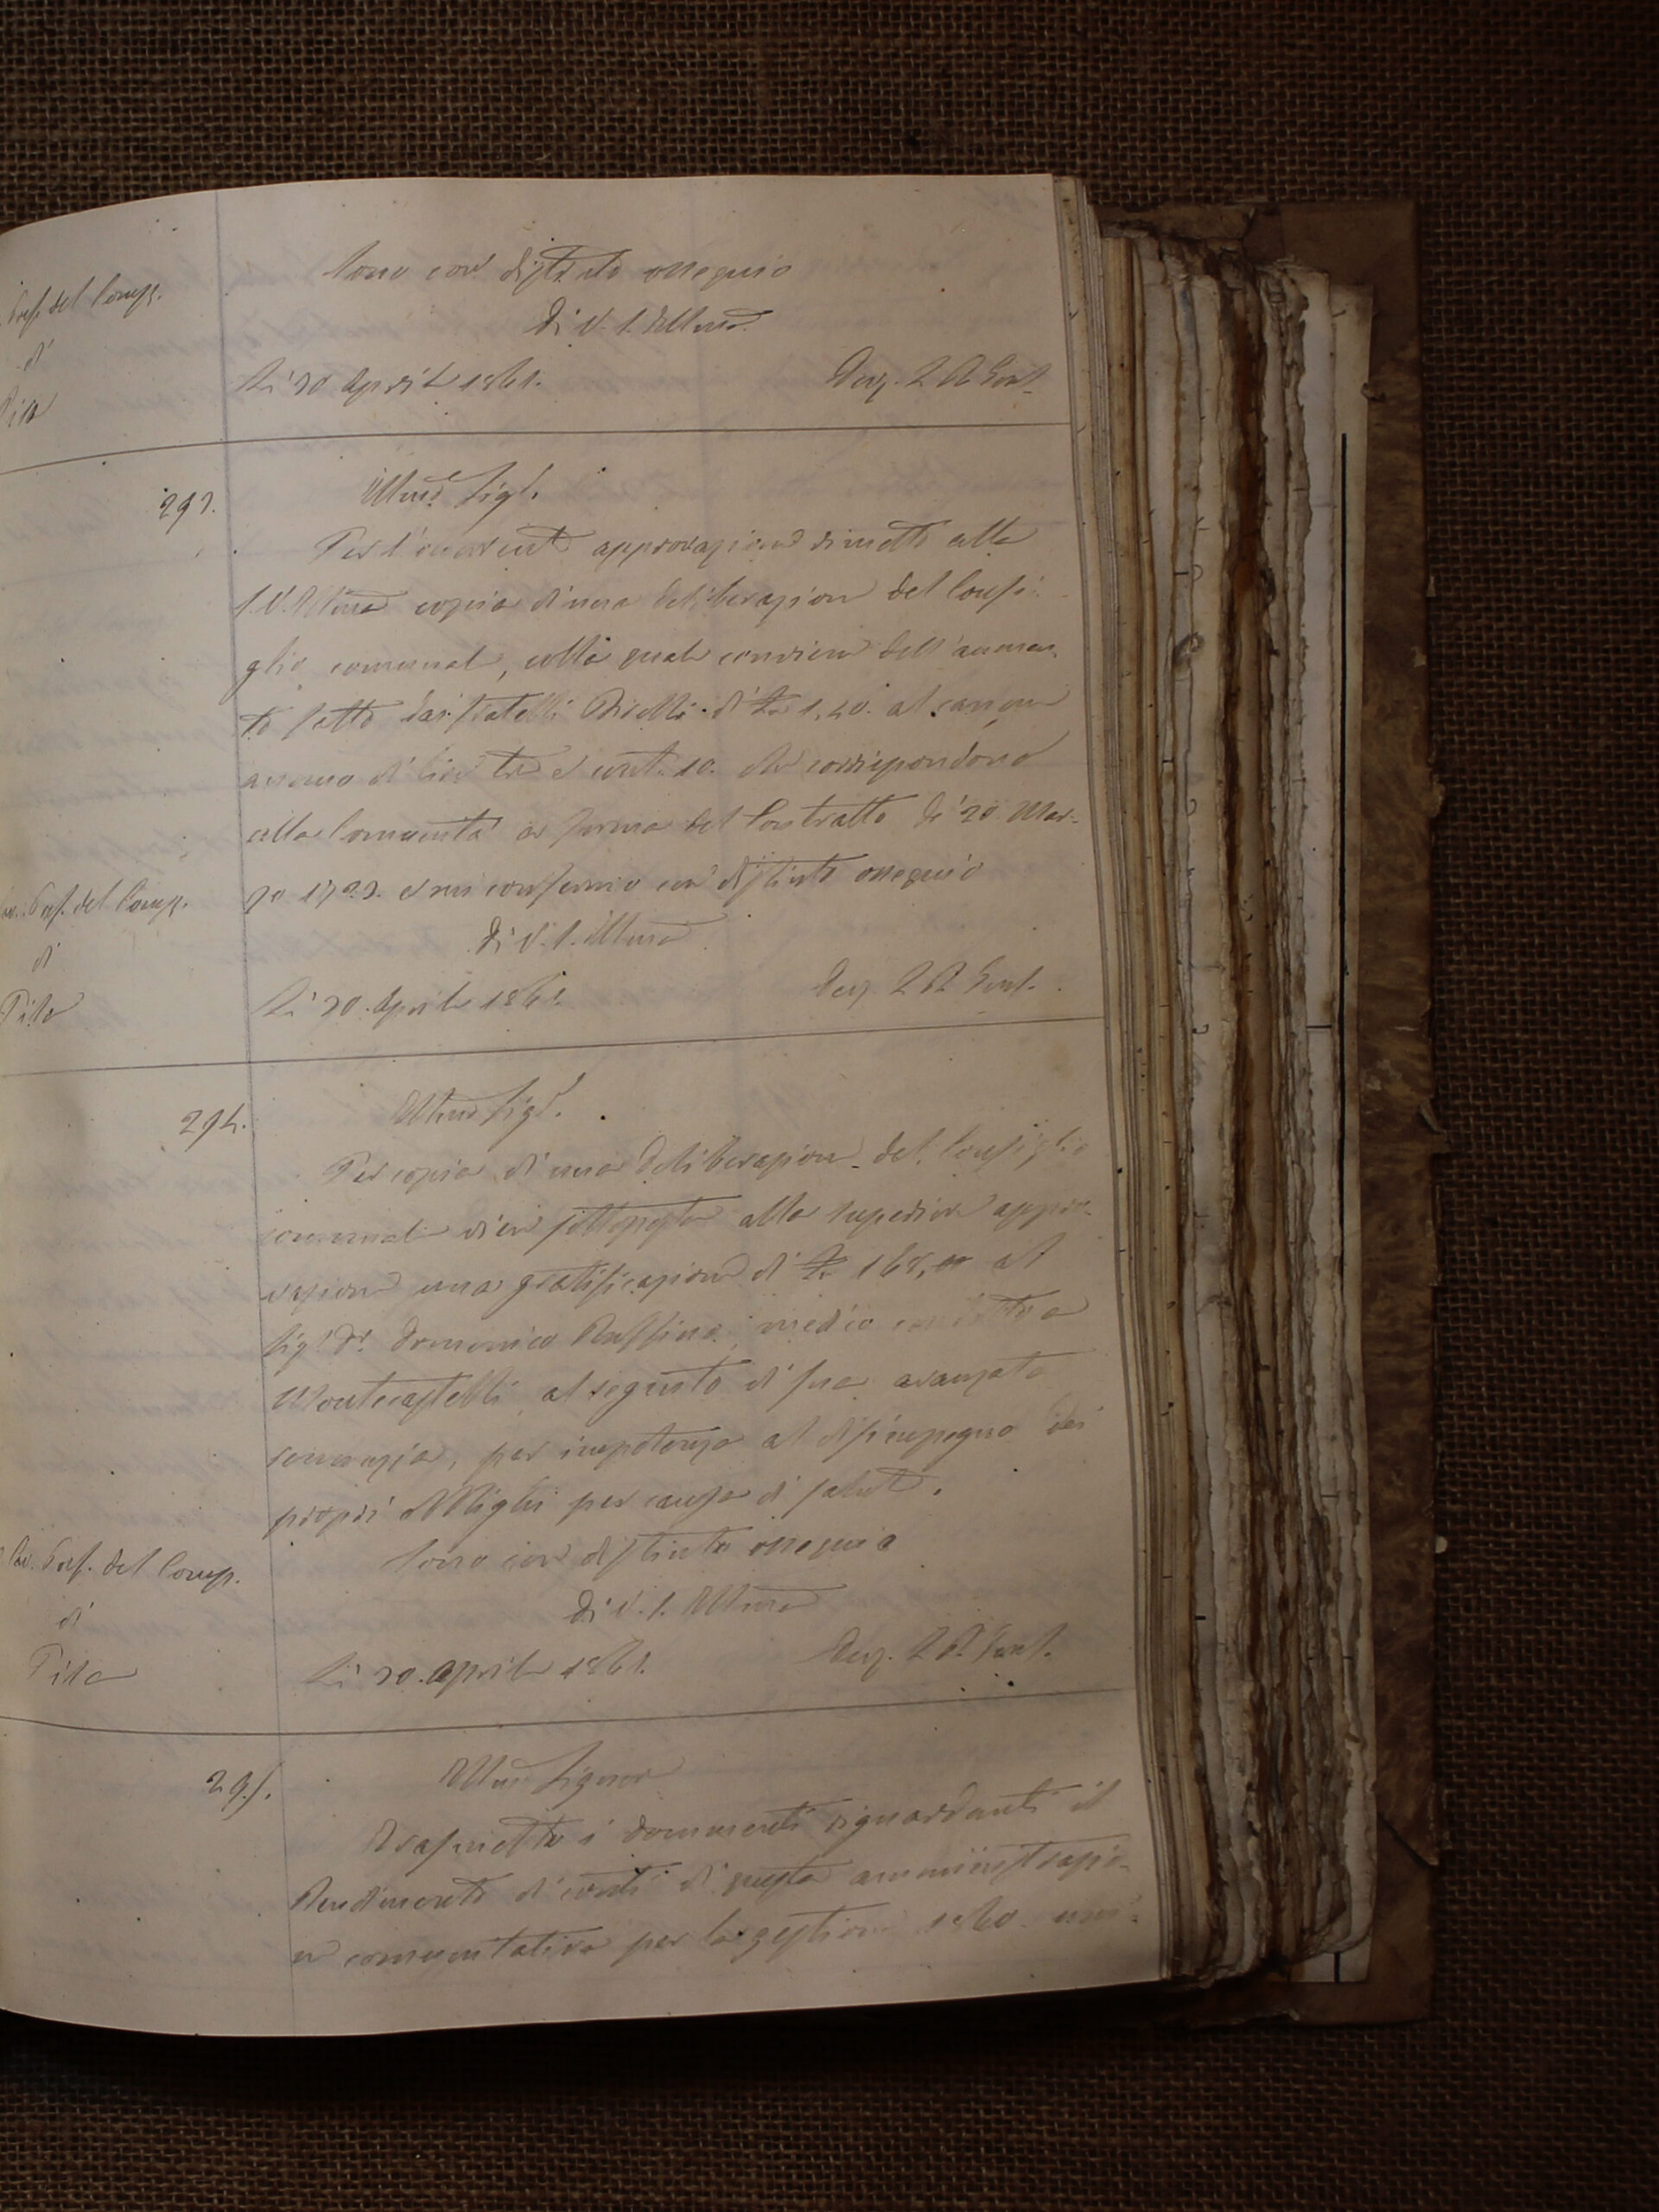 Sono con distinto ossequio
Di V. S. Illma
Pref. del Comp.
di
Pisa
Li 30 Aprile 1861.
293.
Illmo Sigr.
Per l'occorrente approvazione rimetto alla
S. V. Illma copia d'una deliberazione del Consi-
glio comunale, colla quale conviene dell'aumen-
to fatto dai fratelli di £ 1,40. al canone
annuo di lire tre e cent. 10. che corrispondono
alla Comunità a forma del Contratto de' 20 Mar-
zo e mi confermo con distinto ossequio
Di V. S. Illma
Pref. del Comp.
di
Pisa
Li 30. Aprile 1861.
294.
Illmo Sigr.
Per copia di una deliberazione del Consiglio
comunale viene sottoposta alla superiore appro-
vazione una gratificazione di £ 168, al
Sigr. Dr. Domenico medico condotto a
Montecastelli al seguito di sua avanzata
renunzia, per impotenza al disimpegno dei
propri obblighi per causa di salute.
Sono con distinto ossequio
Di V. S. Illma
Pref. del Comp.
di
Pisa
Li 30. Aprile 1861.
295.
Illmo Signore
Trasmetto i documenti riguardanti il
Rendimento di conti di questa amministrazio-
ne comunitativa per la gestione 1860.